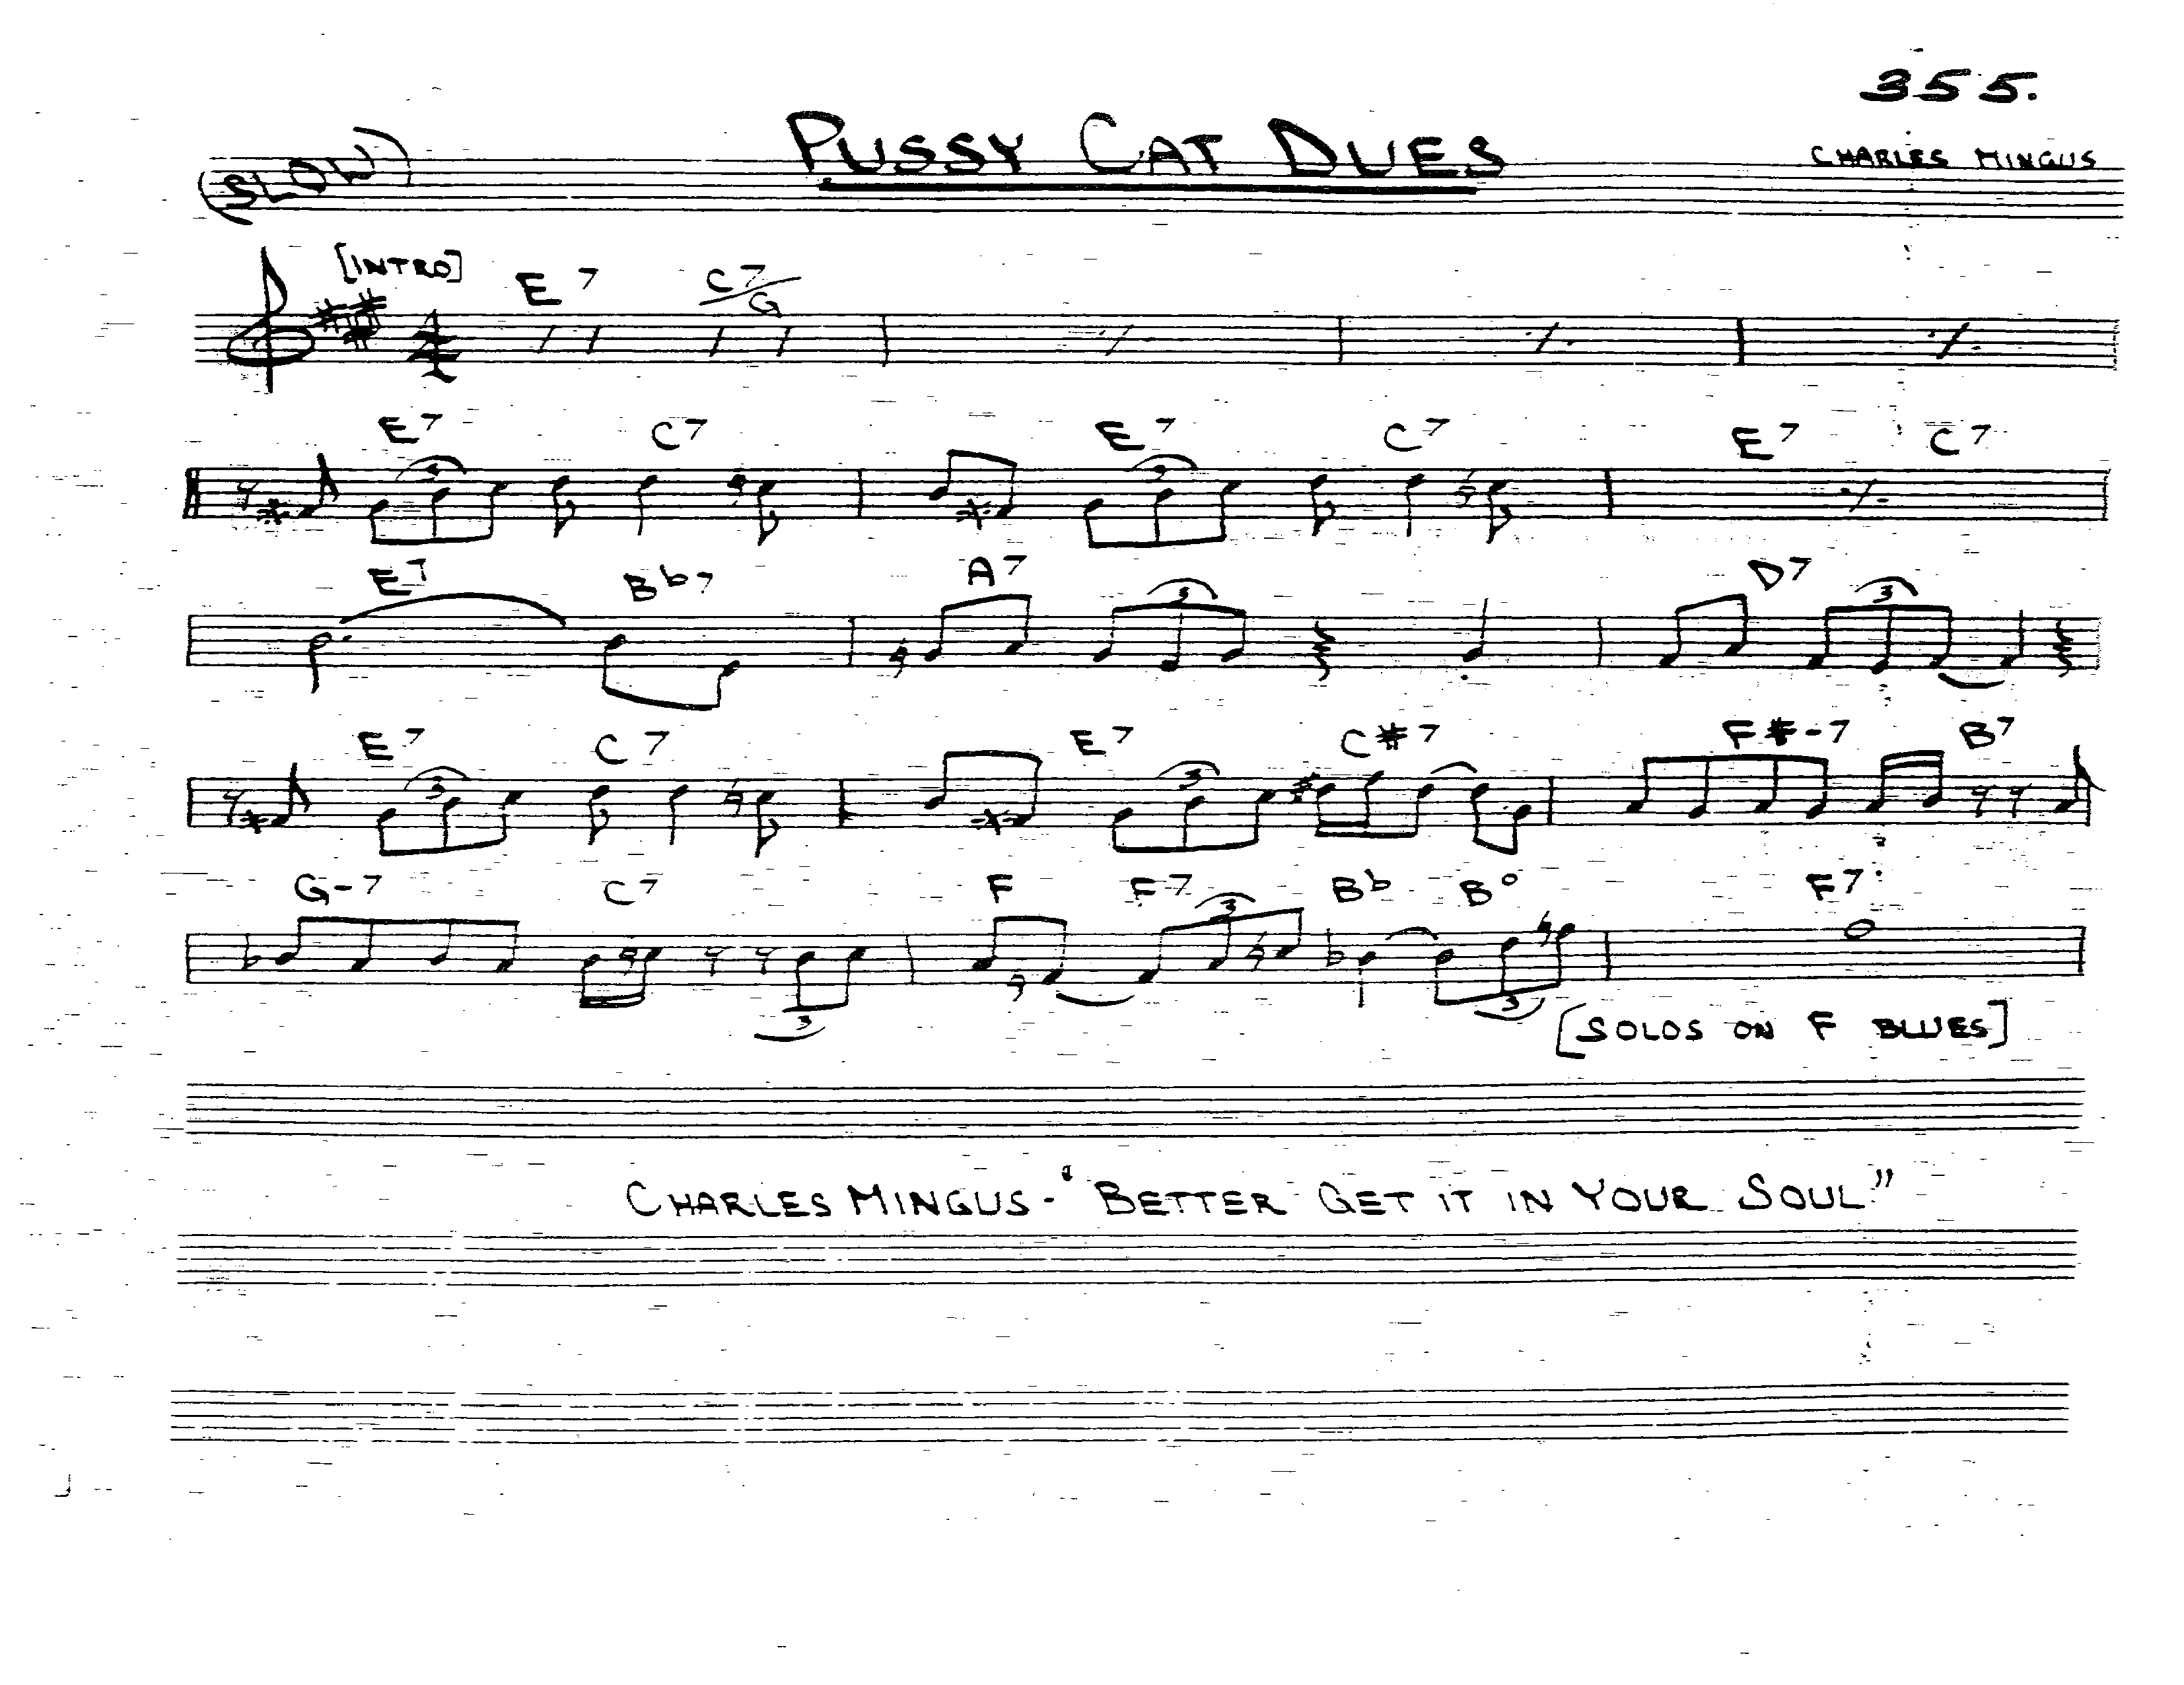 355.
PUSSY CAT DUES
(SLOW)
CHARLES MINGUS
[INTRO] E7 C7/G
E7 C7 E7 C7 E7 C7
3 3
E7 Bb7 A7 D7
3 3
E7 C7 E7 C#7 F#-7 B7
3 3
G-7 C7 F F7 Bb B° F7
3 3 3
[SOLOS ON F BLUES]
CHARLES MINGUS - "BETTER GET IT IN YOUR SOUL"